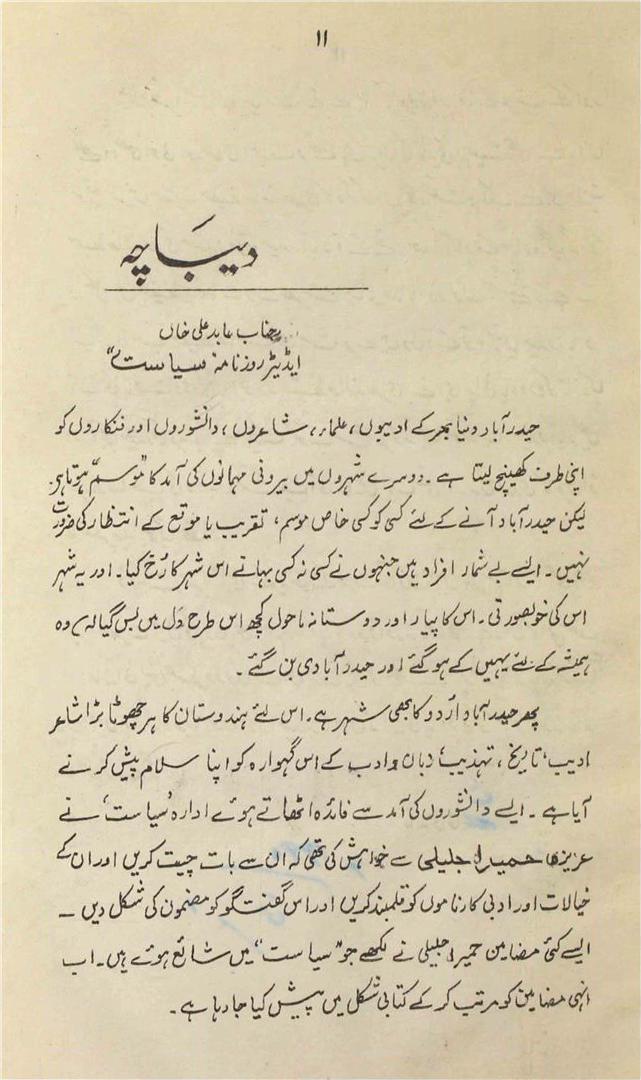 ۱۱
دیبَاچہ
جناب عابد علی خاں
ایڈیٹر روزنامہ "سیاست"
حیدرآباد دنیا بھر کے ادیبوں، علماء، شاعروں، دانشوروں اور فنکاروں کو
اپنی طرف کھینچ لیتا ہے۔ دوسرے شہروں میں بیرونی مہمانوں کی آمد کا "موسم" ہوتا ہی۔
لیکن حیدرآباد آنے کے لئے کسی کو کسی خاص موسم، تقریب یا موقع کے انتظار کی ضرورت
نہیں۔ ایسے بے شمار افراد ہیں جنہوں نے کسی نہ کسی بہانے اس شہر کا رُخ کیا۔ اور یہ شہر
اس کی خوبصورتی۔ اس کا پیار اور دوستانہ ماحول کچھ اس طرح دَل میں بس گیا کہ وہ
ہمیشہ کے لئے یہیں کے ہو گئے اور حیدرآبادی بن گئے۔
پھر حیدرآباد اُردو کا بھی شہر ہے۔ اس لئے ہندوستان کا ہر چھوٹا بڑا شاعر
ادیب، تاریخ، تہذیب، زبان و ادب کے اس گہوارہ کو اپنا سلام پیش کرنے
آیا ہے۔ ایسے دانشوروں کی آمد سے فائدہ اٹھاتے ہوئے ادارہ 'سیاست' نے
عزیزی حمیرا جلیلی سے خواہش کی تھی کہ ان سے بات چیت کریں اور ان کے
خیالات اور ادبی کارناموں کو قلمبند کریں اور اس گفتگو کو مضمون کی شکل دیں ۔
ایسے کئی مضامین حمیرا جلیلی نے لکھے جو "سیاست" میں شائع ہوئے ہیں۔ اب
انہی مضامین کو مرتب کر کے کتابی شکل میں پیش کیا جا رہا ہے۔